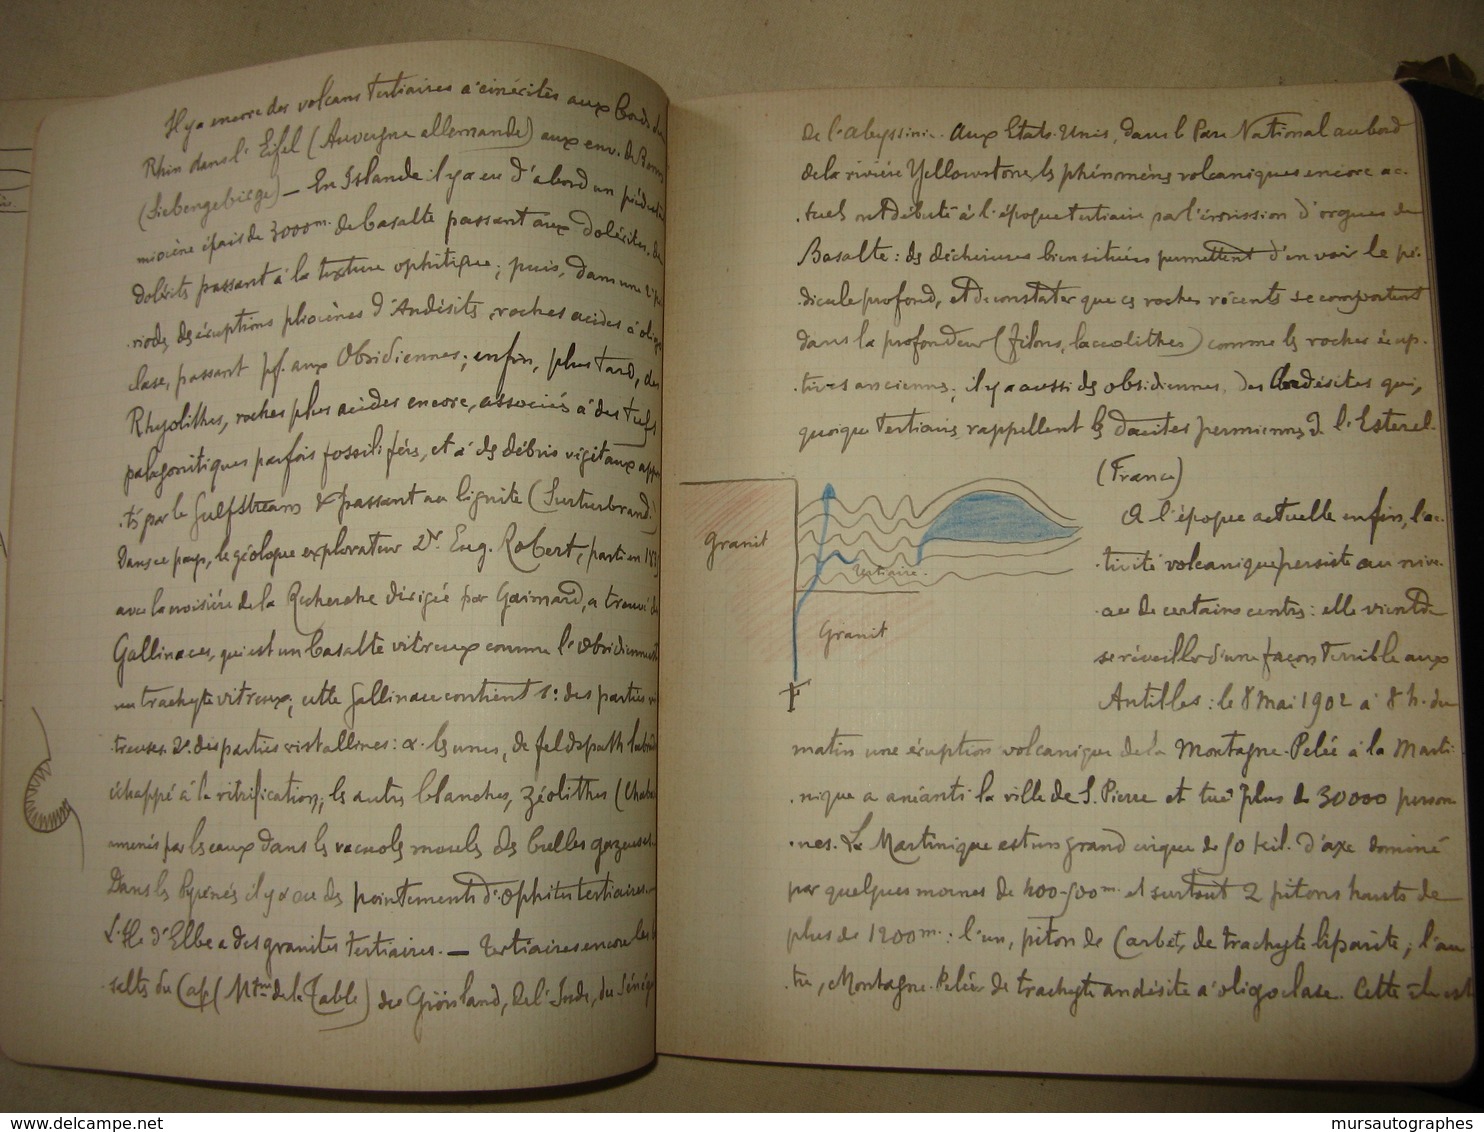 Il y a encore des volcans tertiaires à cinérites aux bords du
Rhin dans l'Eifel (Auvergne allemande) aux env. de Bonn
(Siebengebirge) — En Islande il y a eu d'abord un
miocène épais de 3000m. de basalte passant aux dolérites. de
dolérites passant à la texture ophitique; puis, dans une
riode, des éruptions pliocènes d'Andésites, roches acides à
clase, passant pf. aux Obsidiennes; enfin, plus tard, des
Rhyolithes, roches plus acides encore, associés à des tufs
palagonitiques parfois fossilifères, et à des débris végétaux
tés par le Gulfstream & passant au lignite (Surturbrand.)
Dans ce pays, le géologue explorateur Dr. Eug. Robert, parti en
avec la croisière de la Recherche dirigée par Gaimard, a trouvé
Gallinaces, qui est un basalte vitreux comme l'obsidienne est
un trachyte vitreux; cette Gallinace contient 1º: des parties
treuses 2º. des parties cristallines: α. les unes, de feldspath
échappé à la vitrification; les autres blanches, zéolithes
amenés par les eaux dans les vacuoles moules des bulles gazeuses.
Dans les Pyrénées il y a eu des pointements d'Ophites tertiaires.
L'Ile d'Elbe a des granites tertiaires. — Tertiaires encore les
saltes du Cap (Mtne de la Table) du Groënland, de l'Inde, du
de l'Abyssinie. Aux Etats-Unis, dans le Parc National au bord
de la rivière Yellowstone, les phénomènes volcaniques encore ac-
tuels ont débuté à l'époque tertiaire par l'émission d'orgues de
Basalte: des déchirures bien situées permettent d'en voir le pé-
dicule profond, et de constater que ces roches récentes se comportent
dans la profondeur (filons, laccolithes) comme les roches érup-
tives anciennes; il y a aussi des obsidiennes, des Andésites qui,
quoique tertiaires, rappellent les dacites permiennes de l'Esterel.
(France)
granit
Tertiaire.
Granit
F
A l'époque actuelle enfin, l'ac-
tivité volcanique persiste au nive-
au de certains centres: elle vient de
se réveiller d'une façon terrible aux
Antilles: le 8 Mai 1902 à 8 h. du
matin une éruption volcanique de la Montagne-Pelée à la Marti-
nique a anéanti la ville de S. Pierre et tué plus de 30000 person-
nes. La Martinique est un grand cirque de 50 kil. d'axe dominé
par quelques mornes de 400-500m. et surtout 2 pitons hauts de
plus de 1200m.: l'un, piton de Carbet, de trachyte liparite; l'au-
tre, Montagne-Pelée de trachyte andésite à oligoclase. Cette île est
delcampe.net
mursautographes